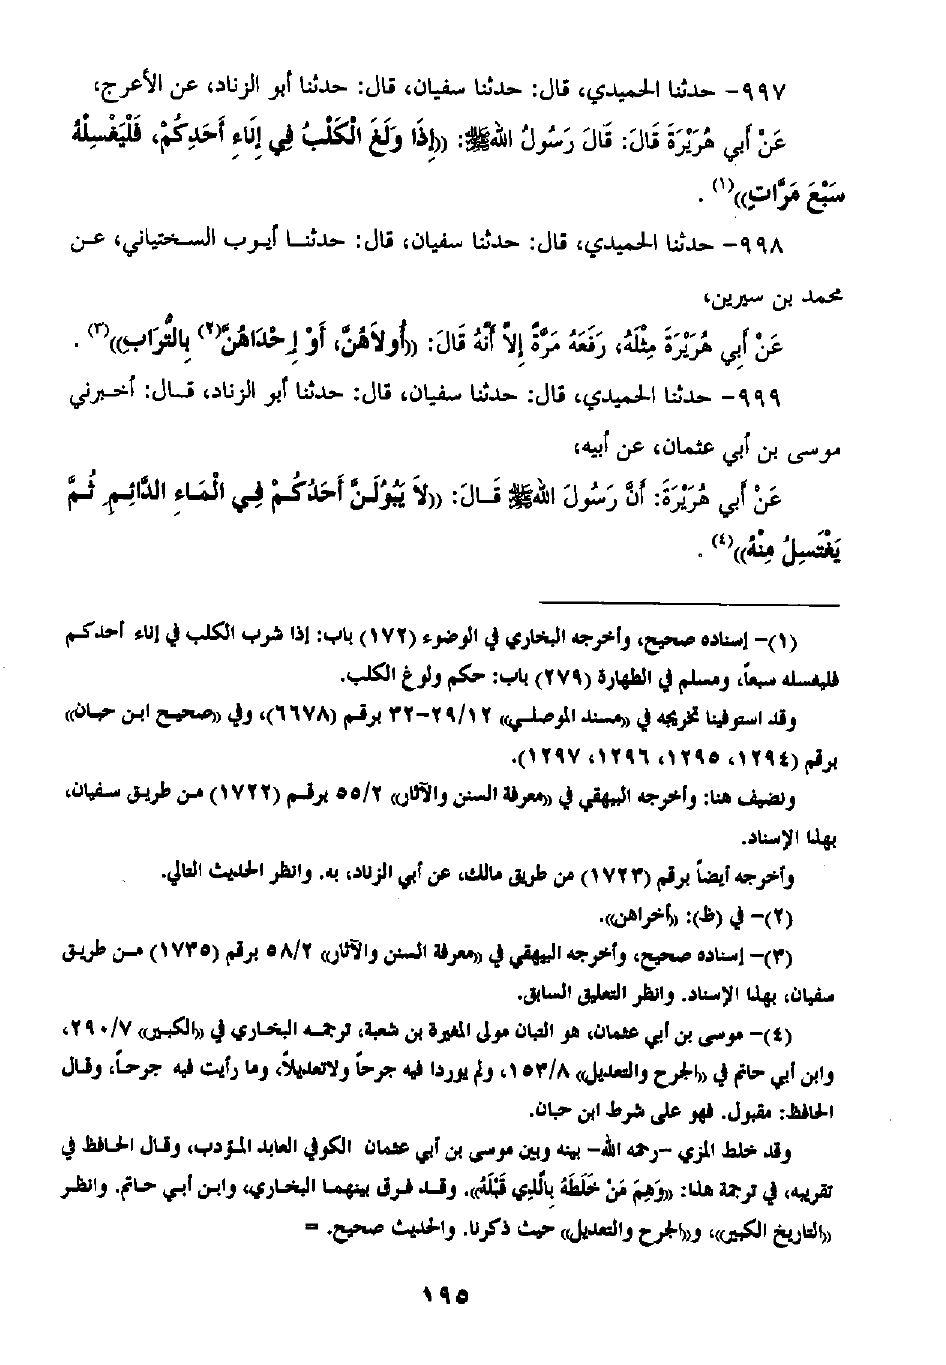 ٩٩٧- حدثنا الحميدي، قال: حدثنا سفيان، قال: حدثنا أبو الزناد، عن الأعرج،
عَنْ أَبي هُرَيْرَةَ قَالَ: قَالَ رَسُولُ اللهِ ﷺ: ((إِذَا وَلَغَ الْكَلْبُ فِي إِنَاءِ أَحَدِكُمْ، فَلْيَغْسِلْهُ
سَبْعَ مَرَّاتٍ))(١) .
٩٩٨- حدثنا الحميدي، قال: حدثنا سفيان، قال: حدثنـا أيـوب السـختياني، عـن
محمد بن سيرين،
عَنْ أَبي هُرَيْرَةَ مِثْلَهُ، رَفَعَهُ مَرَّةً إِلاَّ أَنَّهُ قَالَ: ((أُولاَهُنَّ، أَوْ إِحْدَاهُنَّ(٢) بِالتُّرَابِ))(٣) .
٩٩٩- حدثنا الحميدي، قال: حدثنا سفيان، قال: حدثنا أبو الزناد، قـال: أخـبرني
موسى بن أبي عثمان، عن أبيه،
عَنْ أَبي هُرَيْرَةَ: أَنَّ رَسُولَ اللهِ ﷺ قَـالَ: ((لاَ يَبُوْلَـنَّ أَحَدُكُـمْ فِـي الْمَـاءِ الدَّائِـمِ ثُـمَّ
يَغْتَسِلُ مِنْهُ))(٤) .
(١)- إسناده صحيح، وأخرجه البخاري في الوضوء (١٧٢) باب: إذا شرب الكلب في إناء أحدكـم
فليغسله سبعاً، ومسلم في الطهارة (٢٧٩) باب: حكم ولوغ الكلب.
وقد استوفينا تخريجه في ((مسند الموصلي)) ١٢/ ٢٩-٣٢ برقم (٦٦٧٨)، وفي ((صحيح ابن حبان))
برقم (١٢٩٤، ١٢٩٥، ١٢٩٦، ١٢٩٧).
ونضيف هنا: وأخرجه البيهقي في ((معرفة السنن والآثار)) ٥٥/٢ برقـم (١٧٢٢) مـن طريـق سفيان،
بهذا الإسناد.
وأخرجه أيضاً برقم (١٧٢٣) من طريق مالك، عن أبي الزناد، به. وانظر الحديث التالي.
(٢)- في (ظ): ((أخراهن)).
(٣)- إسناده صحيح، وأخرجه البيهقي في ((معرفة السنن والآثار)) ٥٨/٢ برقم (١٧٣٥) مـن طريق
سفيان، بهذا الإسناد. وانظر التعليق السابق.
(٤)- موسى بن أبي عثمان، هو التبان مولى المغيرة بن شعبة، ترجمـه البخاري في ((الكبير)) ٢٩٠/٧،
وابن أبي حاتم في ((الجرح والتعديل)) ١٥٣/٨، ولم يوردا فيه جرحاً ولاتعديلاً، وما رأيت فيه جرحـاً، وقـال
الحافظ: مقبول. فهو على شرط ابن حبان.
وقد خلط المزي -رحمه الله- بينه وبين موسى بن أبي عثمان الكوفي العابد المـؤدب، وقـال الحـافظ في
تقريبه، في ترجمة هذا: ((وَهِمَ مَنْ خَلَطَهُ بِالَّذِي قَبْلَهُ)). وقـد فـرق بينهمـا البخاري، وابـن أبـي حاتم. وانظـر
((التاريخ الكبير))، و((الجرح والتعديل)) حيث ذكرنا. والحديث صحيح. =
١٩٥